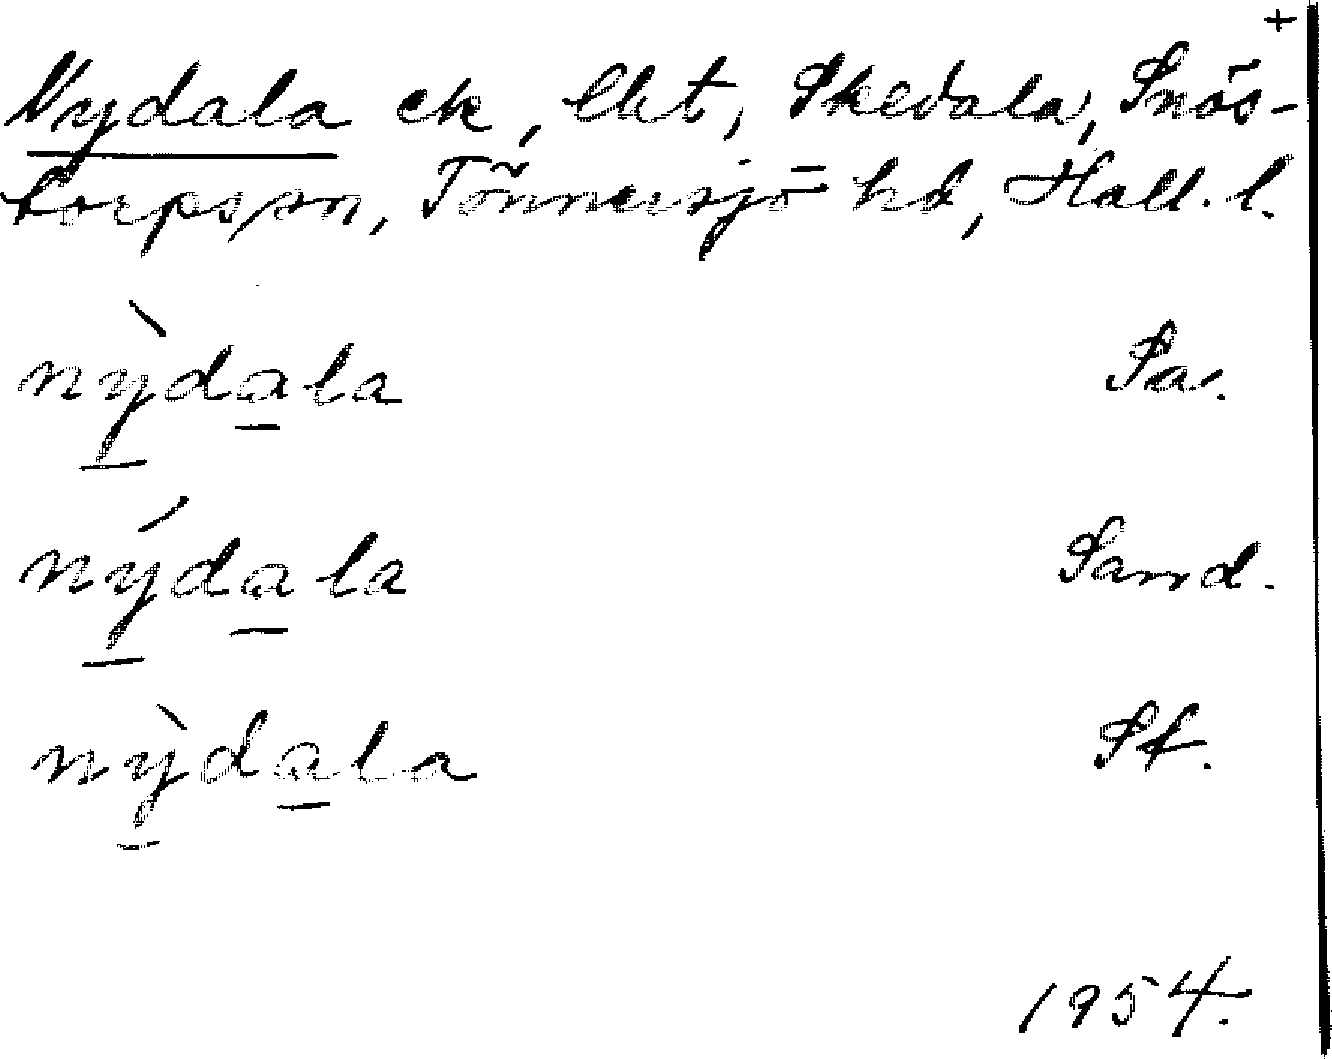 +
Nydala ek, lht, Skedala, Snös-
torps sn, Tönnersjö hd, Hall. l.
nỳdala Sa.
nýdala Sand.
nỳdala St.
1954.